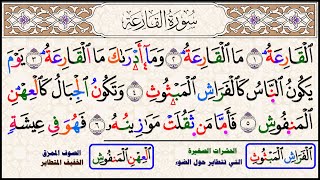 سُورَةُ القَارِعَةِ
الْقَارِعَةُ ١ مَا الْقَارِعَةُ ٢ وَمَآ أَدْرَىٰكَ مَا الْقَارِعَةُ ٣ يَوْمَ
يَكُونُ النَّاسُ كَالْفَرَاشِ الْمَبْثُوثِ ٤ وَتَكُونُ الْجِبَالُ كَالْعِهْنِ
الْمَنْفُوشِ ٥ فَأَمَّا مَنْ ثَقُلَتْ مَوَٰزِينُهُۥ ٦ فَهُوَ فِي عِيشَةٍ
الْفَرَاشِ الْمَبْثُوثِ الحشرات الصغيرة التي تتطاير حول الضوء الْعِهْنِ الْمَنْفُوشِ الصوف الممزق الخفيف المتطاير